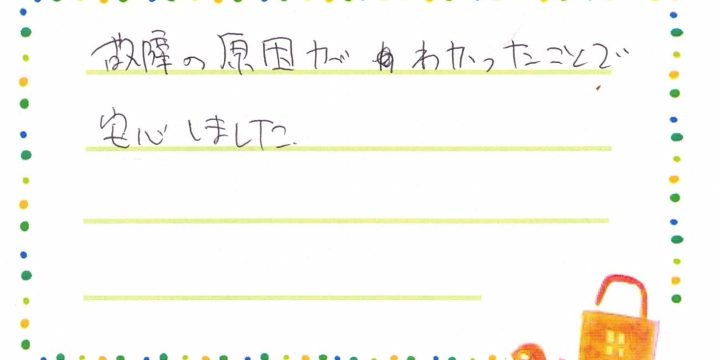 故障の原因がわかったことで
安心しました.